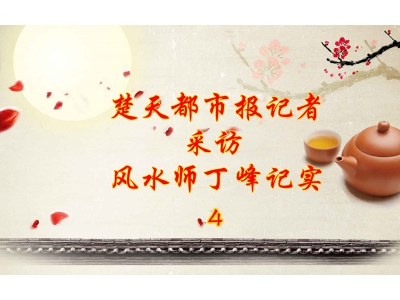 楚天都市报记者
采访
风水师丁峰记实
4